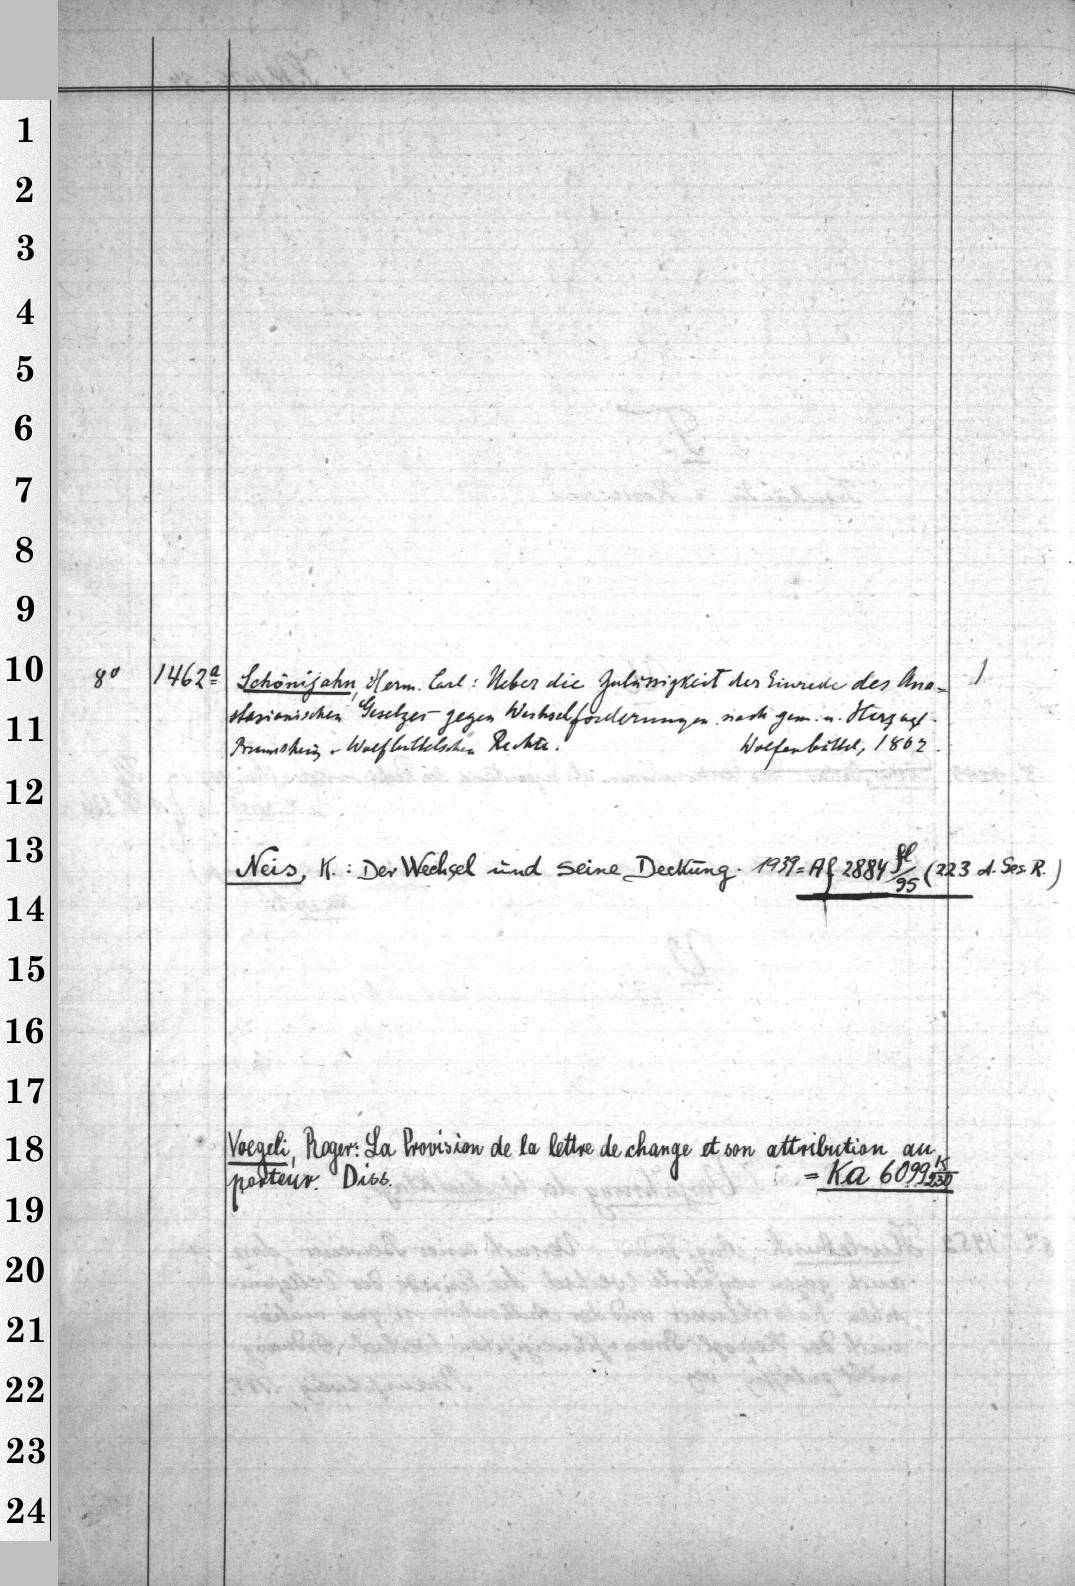 1
2
3
4
5
6
7
8
9
10
11
12
13
14
15
16
17
18
19
20
21
22
23
24
8° 1462a Schönijahn, Herm. Carl: Ueber die Zulässigkeit der Einrede des Ana- 1
stasianischen Gesetzes gegen Wechselforderungen nach gem. u. Herzogl.
Braunschweig-Wolfenbüttelschen Rechte. Wolfenbüttel, 1802.
Neis, K.: Der Wechsel und seine Deckung. 1939 = Af 2884 fl/95 (223 d. Ges. R.)
Voegeli, Roger: La Provision de la lettre de change et son attribution au
porteur. Diss. = Ka 6099 15/230